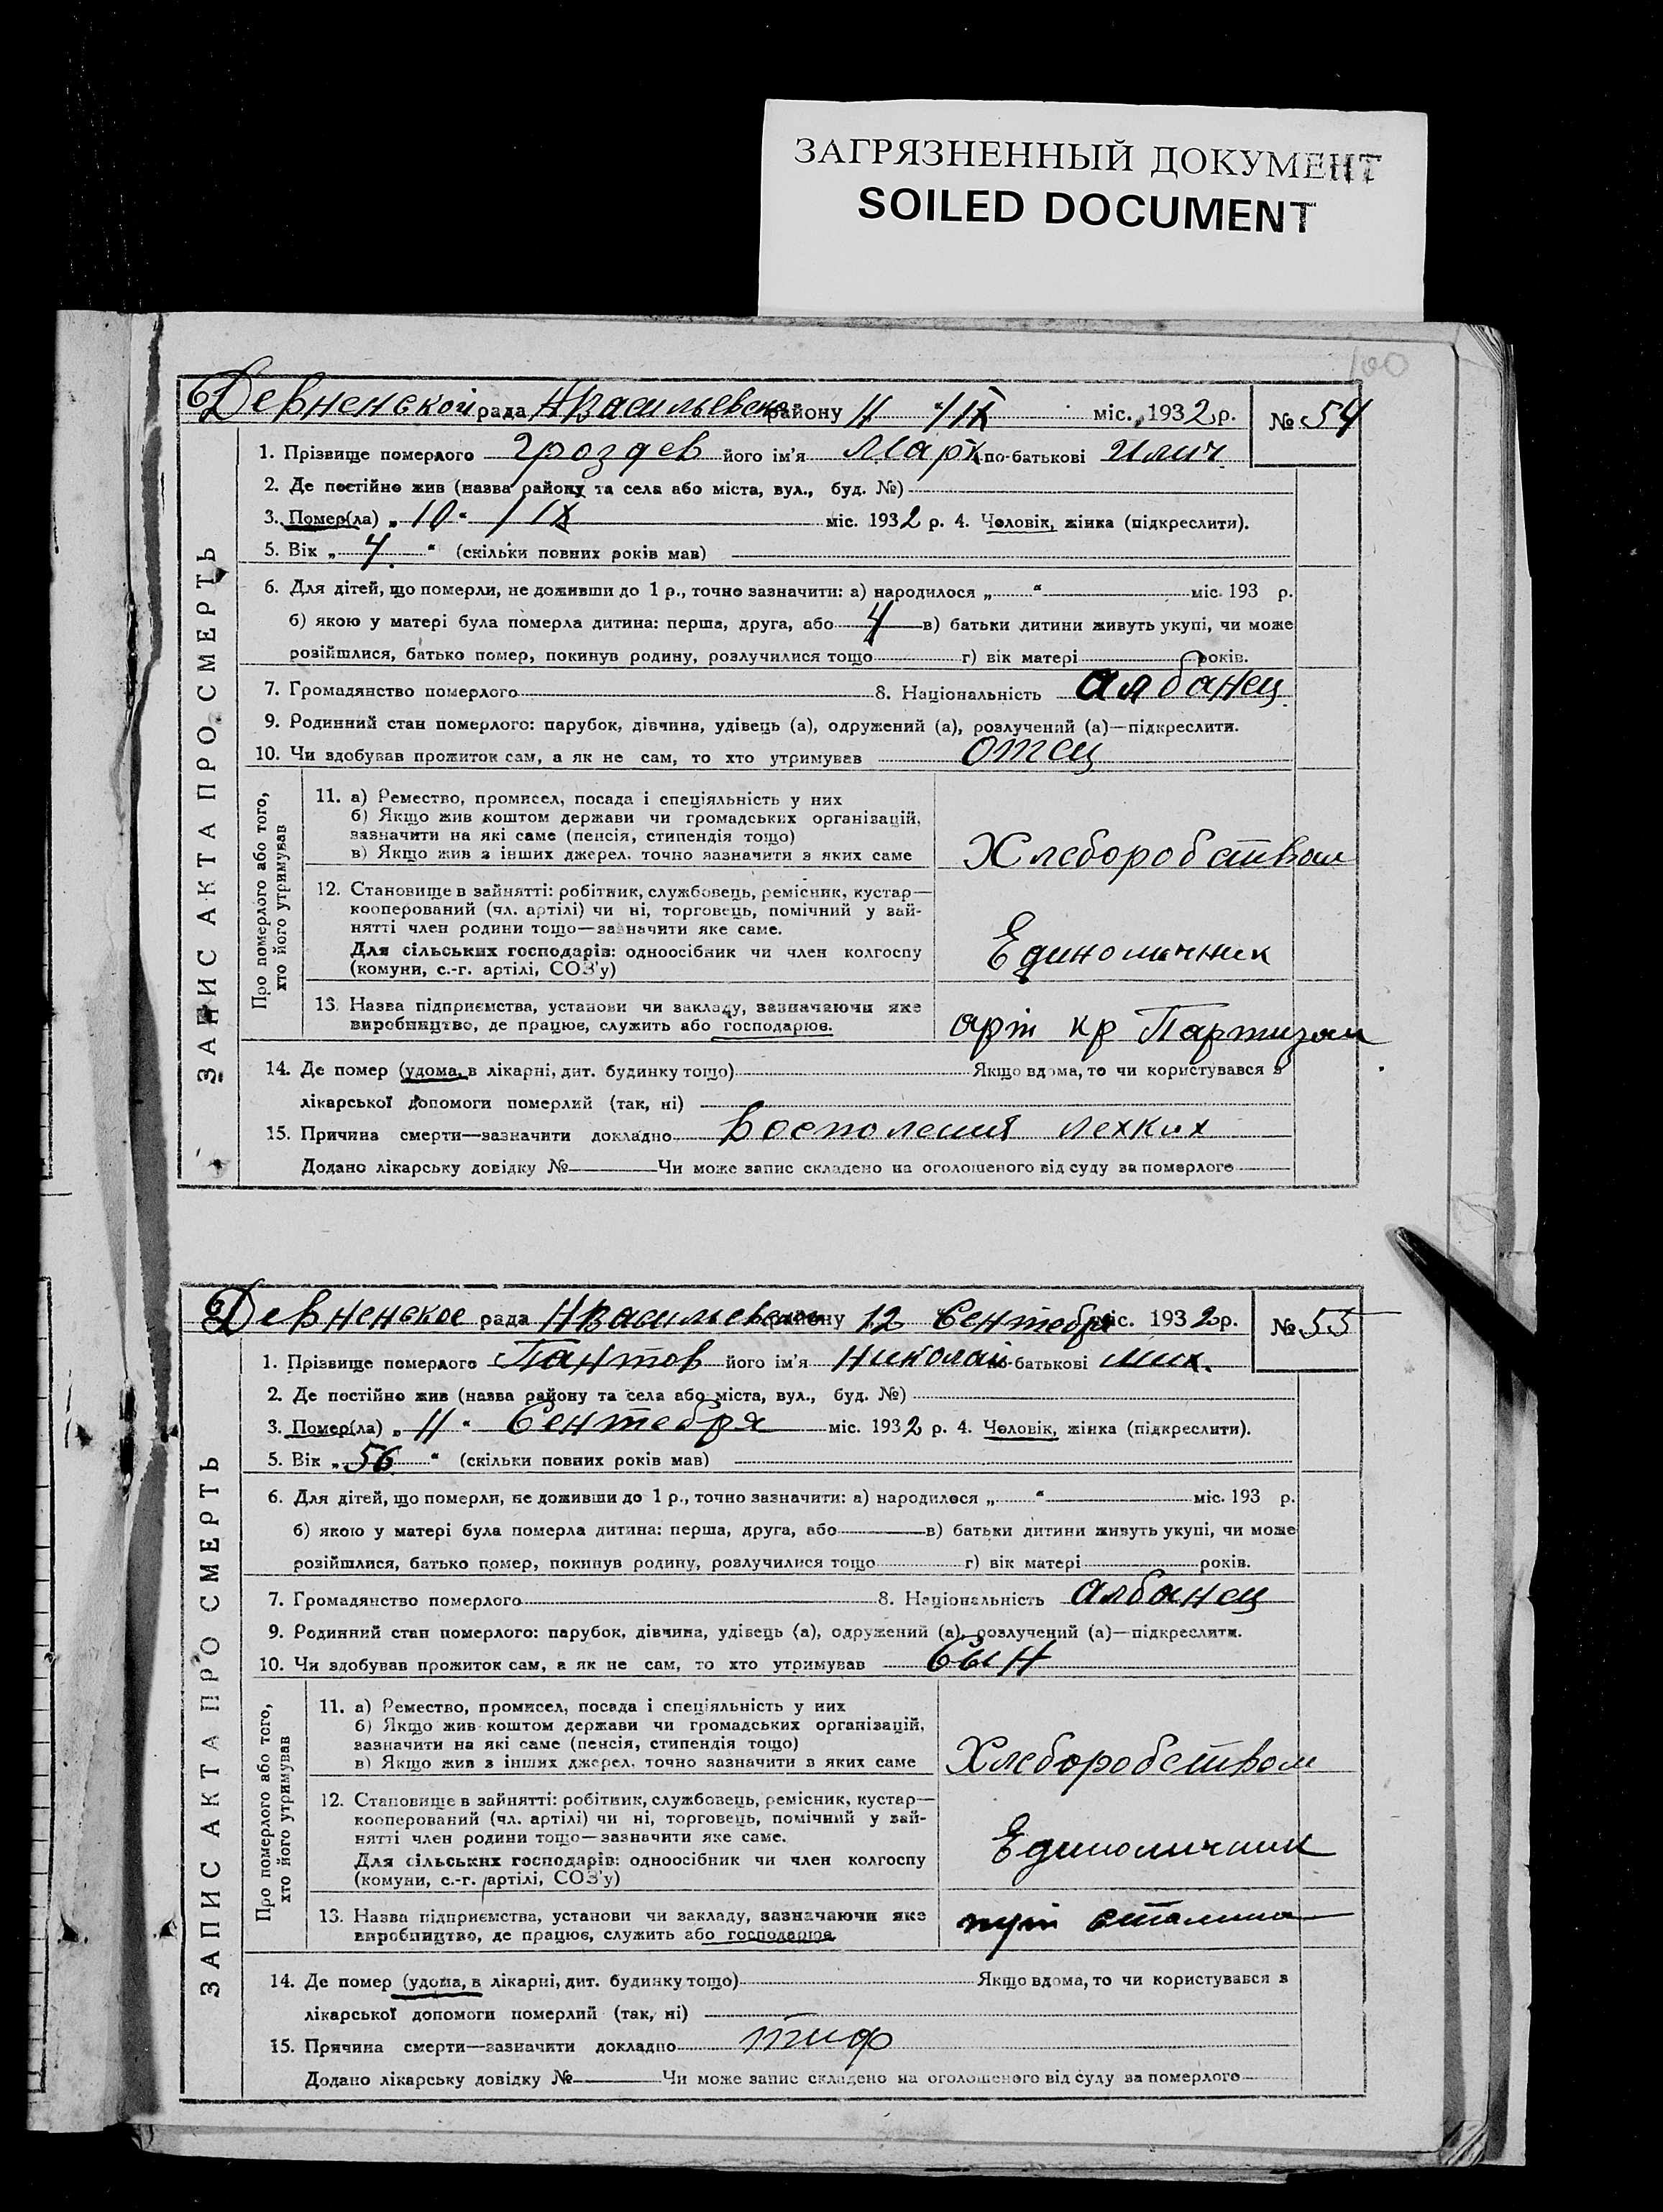 100
ЗАГРЯЗНЕННЫЙ ДОКУМЕНТ
SOILED DOCUMENT
Девненской рада НВасильевско району 11 "/IX міс. 1932 р. № 54
ЗАПИС АКТА ПРО СМЕРТЬ
1. Прізвище померлого Гроздев його ім'я Марк по-батькові Илич
2. Де постійно жив (назва району та села або міста, вул., буд. №)
3. Помер(ла) „10“ /IX міс. 1932 р. 4. Чоловік, жінка (підкреслити).
5. Вік „4“ (скільки повних років мав)
6. Для дітей, що померли, не доживши до 1 р., точно зазначити: а) народилося „ “ міс. 193 р.
б) якою у матері була померла дитина: перша, друга, або 4 в) батьки дитини живуть укупі, чи може
розійшлися, батько помер, покинув родину, розлучилися тощо г) вік матері років.
7. Громадянство померлого 8. Національність албанец
9. Родинний стан померлого: парубок, дівчина, удівець (а), одружений (а), розлучений (а)—підкреслити.
10. Чи здобував прожиток сам, а як не сам, то хто утримував отец
Про померлого або того,
хто його утримував
11. а) Ремество, промисел, посада і спеціяльність у них
б) Якщо жив коштом держави чи громадських організацій,
зазначити на які саме (пенсія, стипендія тощо)
в) Якщо жив з інших джерел, точно зазначити з яких саме
Хлеборобством
12. Становище в зайнятті: робітник, службовець, ремісник, кустар—
кооперований (чл. артілі) чи ні, торговець, помічний у зай-
нятті член родини тощо—зазначити яке саме.
Для сільських господарів: одноосібник чи член колгоспу
(комуни, с.-г. артілі, СОЗ'у)
Единоличник
13. Назва підприємства, установи чи закладу, зазначаючи яке
виробництво, де працює, служить або господарює.
арт кр Партизан
14. Де помер (удома, в лікарні, дит. будинку тощо) Якщо вдома, то чи користувався з
лікарської допомоги померлий (так, ні)
15. Причина смерти—зазначити докладно Восполения лехких
Додано лікарську довідку № Чи може запис складено на оголошеного від суду за померлого
Девненское рада НВасильевском району 12 Сентебря міс. 1932 р. № 55
ЗАПИС АКТА ПРО СМЕРТЬ
1. Прізвище померлого Пантов його ім'я Николай по-батькові Мих.
2. Де постійно жив (назва району та села або міста, вул., буд. №)
3. Помер(ла) „11“ Сентебря міс. 1932 р. 4. Чоловік, жінка (підкреслити).
5. Вік „56“ (скільки повних років мав)
6. Для дітей, що померли, не доживши до 1 р., точно зазначити: а) народилося „ “ міс. 193 р.
б) якою у матері була померла дитина: перша, друга, або в) батьки дитини живуть укупі, чи може
розійшлися, батько помер, покинув родину, розлучилися тощо г) вік матері років.
7. Громадянство померлого 8. Національність албанец
9. Родинний стан померлого: парубок, дівчина, удівець (а), одружений (а), розлучений (а)—підкреслити.
10. Чи здобував прожиток сам, а як не сам, то хто утримував Сын
Про померлого або того,
хто його утримував
11. а) Ремество, промисел, посада і спеціяльність у них
б) Якщо жив коштом держави чи громадських організацій,
зазначити на які саме (пенсія, стипендія тощо)
в) Якщо жив з інших джерел, точно зазначити з яких саме
Хлеборобством
12. Становище в зайнятті: робітник, службовець, ремісник, кустар—
кооперований (чл. артілі) чи ні, торговець, помічний у зай-
нятті член родини тощо—зазначити яке саме.
Для сільських господарів: одноосібник чи член колгоспу
(комуни, с.-г. артілі, СОЗ'у)
Единоличник
13. Назва підприємства, установи чи закладу, зазначаючи яке
виробництво, де працює, служить або господарює.
сталина
14. Де помер (удома, в лікарні, дит. будинку тощо) Якщо вдома, то чи користувався з
лікарської допомоги померлий (так, ні)
15. Причина смерти—зазначити докладно тиф
Додано лікарську довідку № Чи може запис складено на оголошеного від суду за померлого